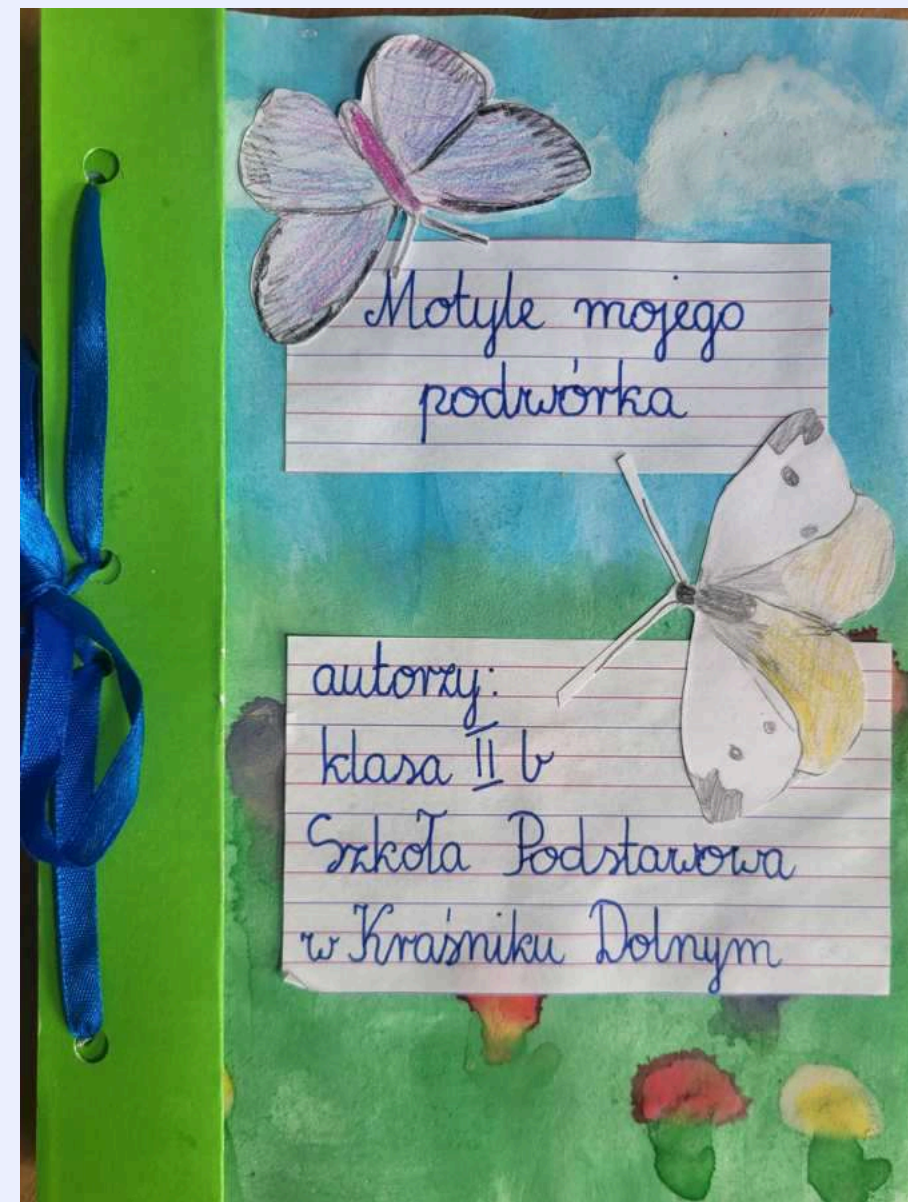 Motyle mojego
podwórka
autorzy:
klasa II b
Szkoła Podstawowa
w Kraśniku Dolnym